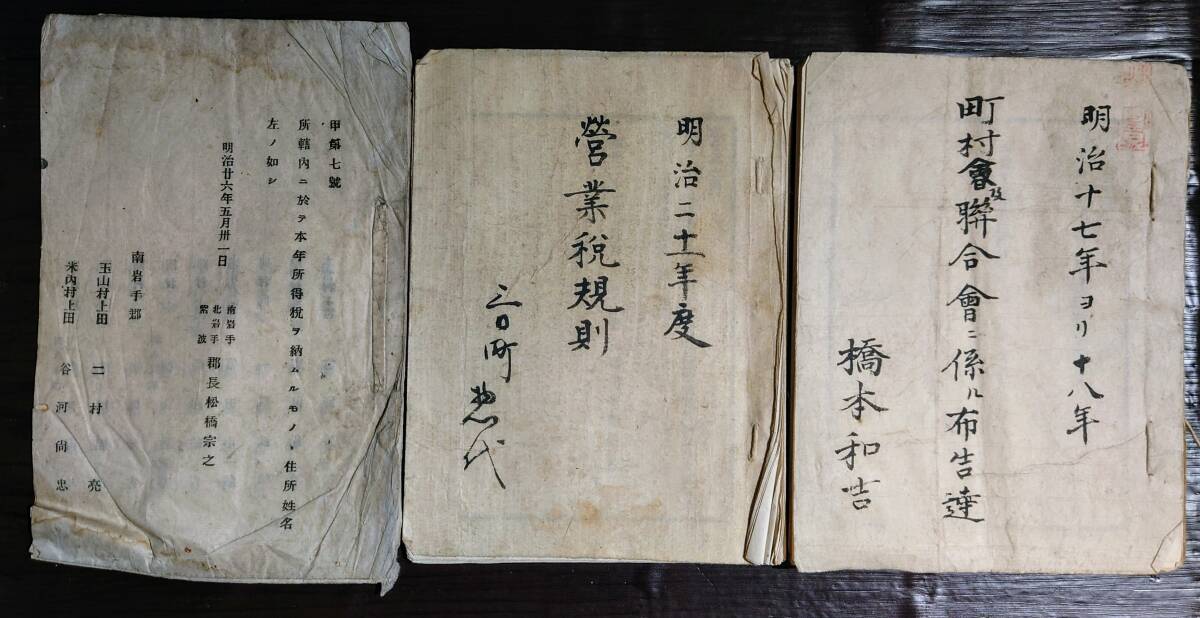 明治十七年ヨリ十八年
町村會及聯合會ニ係ル布告達
橋本和吉
明治二十一年度
營業税規則
三日町惣代
甲第七號
所轄内ニ於テ本年所得税ヲ納ムルモノヽ住所姓名
左ノ如シ
明治廿六年五月卅一日
南岩手
北岩手
紫波
郡長松橋宗之
南岩手郡
玉山村上田 二村 亮
米内村上田 谷河尚忠